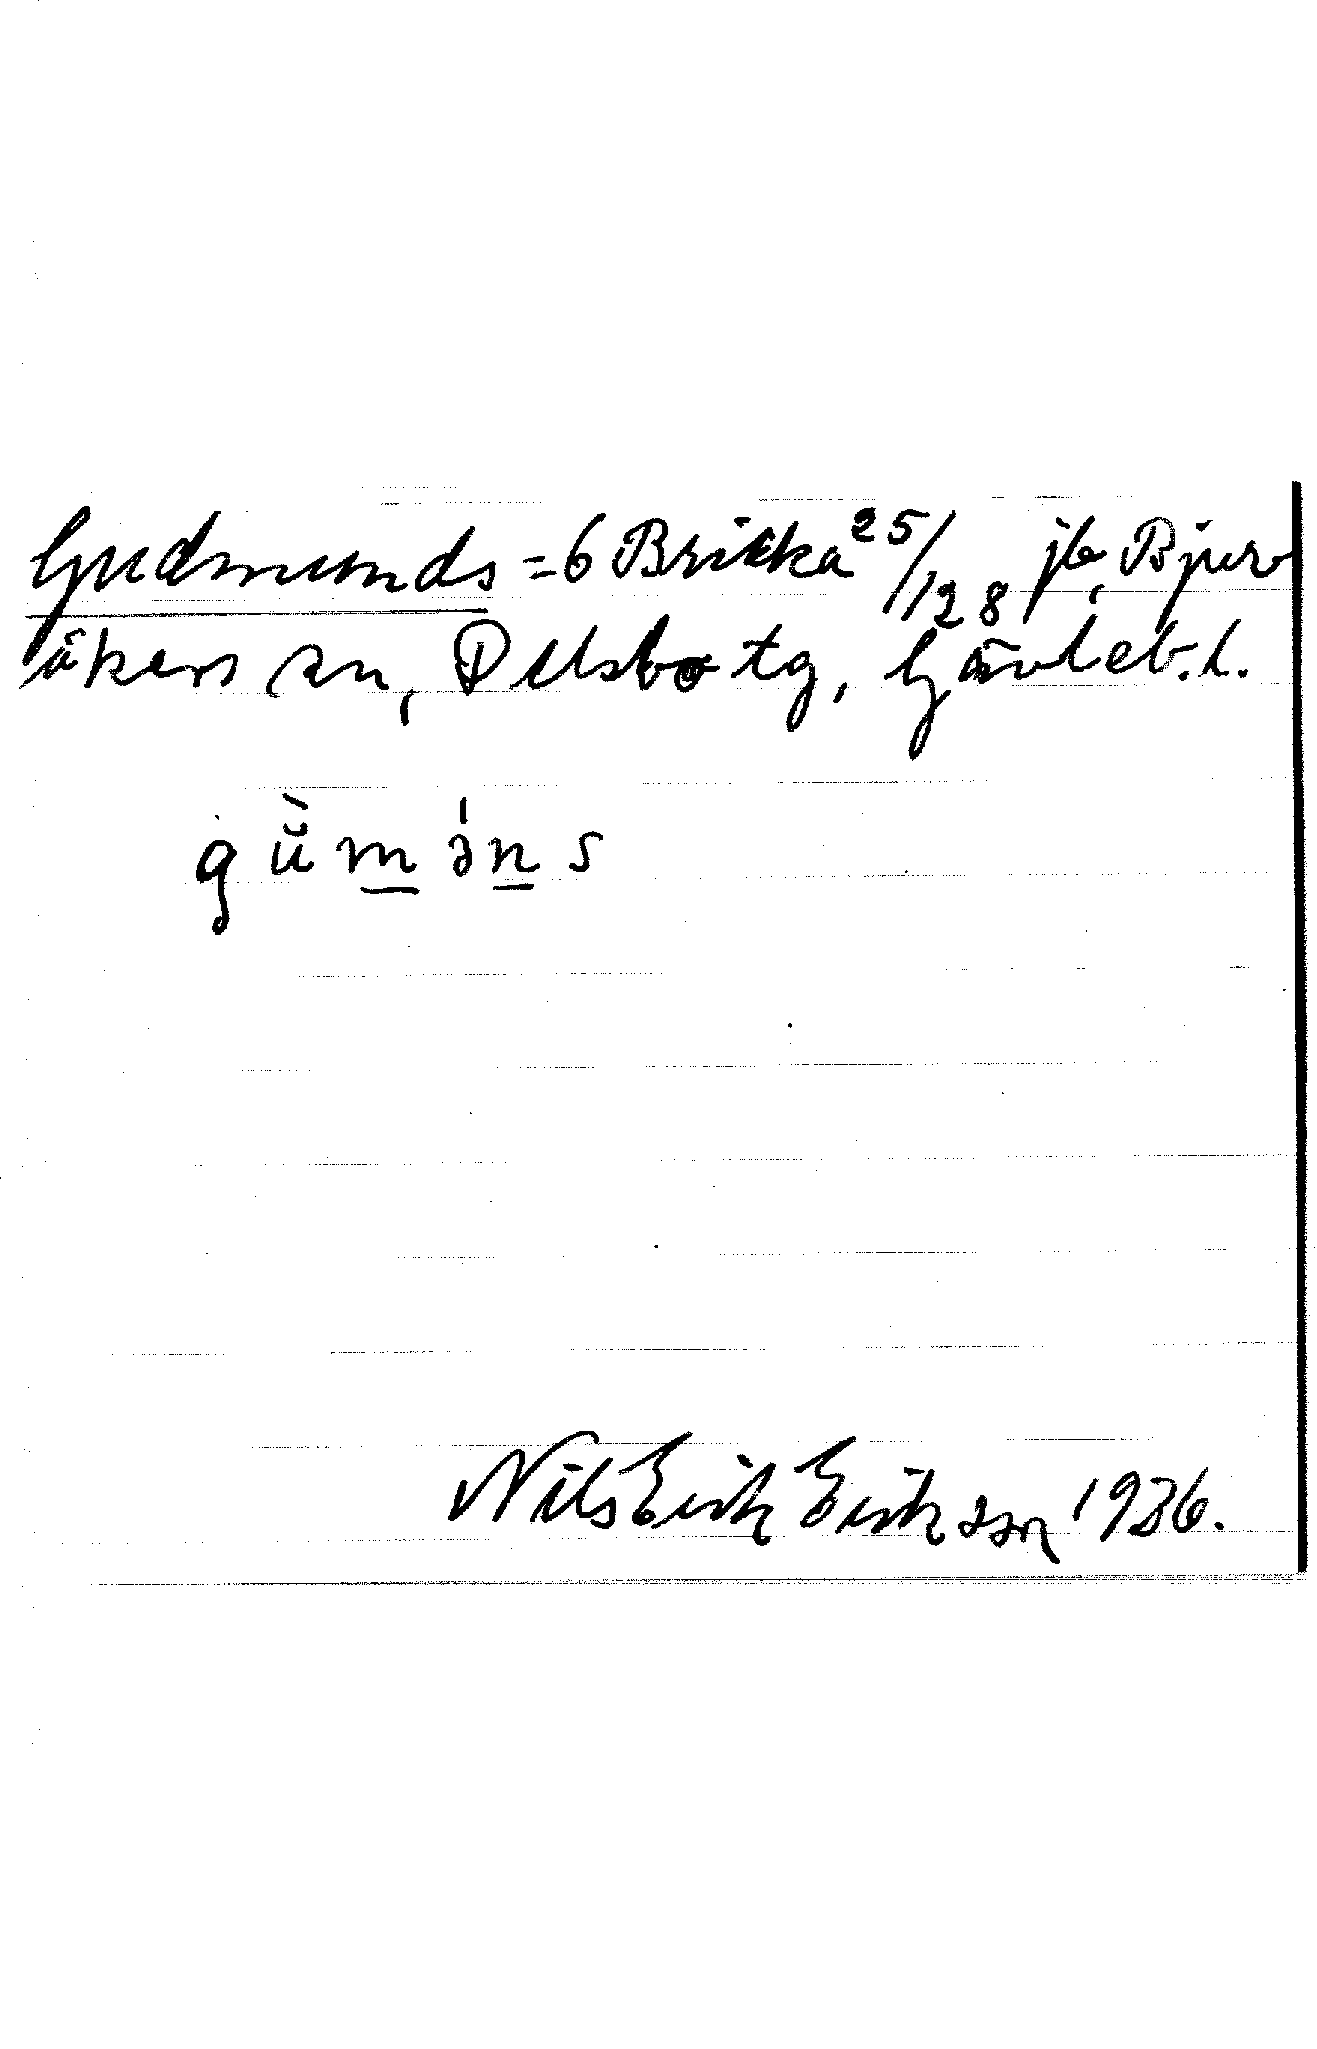 Gudmunds = 6 Bricka 25/128 jb, Bjur
åkers sn, Delsbo tg, Gävleb. l.
gŭ̀mə́ns
Nils Erik Eriksson 1936.